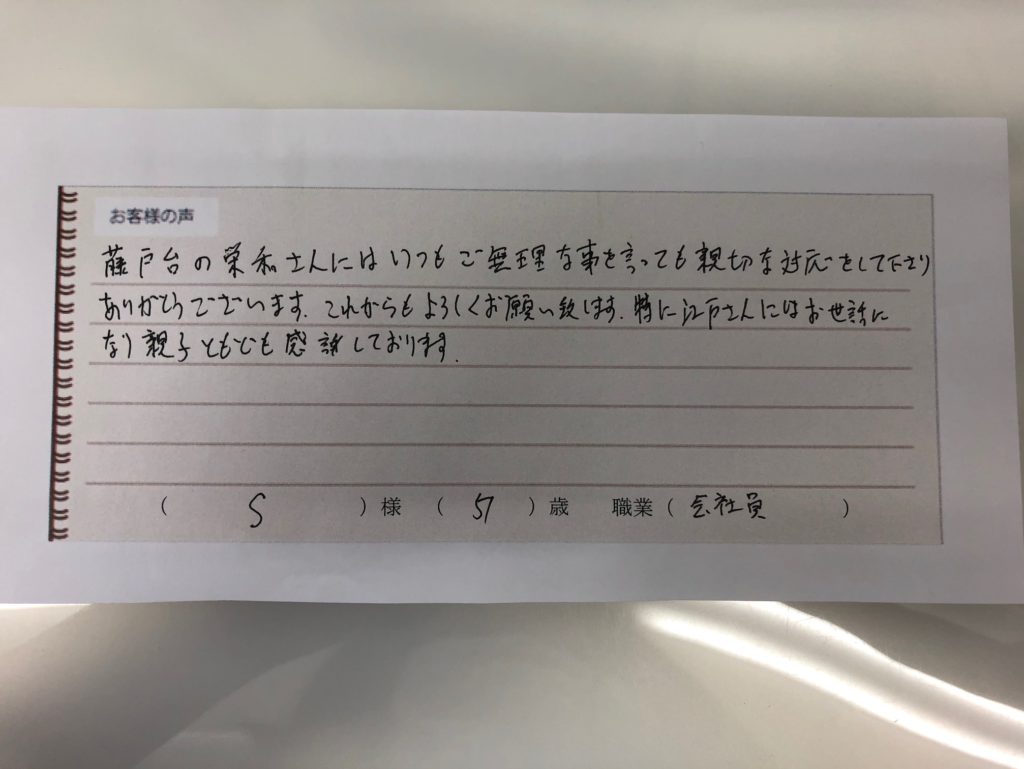 お客様の声
藤戸台の栄和さんにはいつもご無理な事を言っても親切な対応をして下さり
ありがとうございます。これからもよろしくお願い致します。特に江戸さんにはお世話に
なり親子ともども感謝しております。
( S )様 ( 51 )歳 職業( 会社員 )